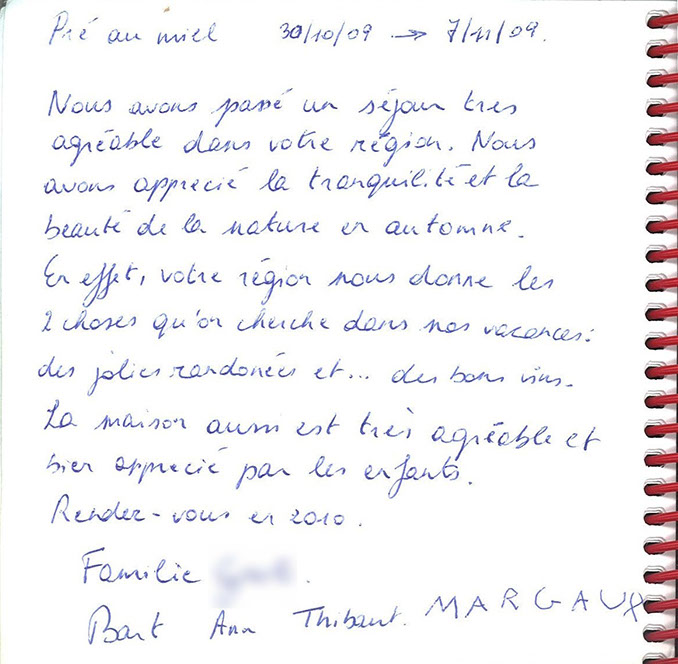 Pré au miel 30/10/09 → 7/11/09.
Nous avons passé un séjour très
agréable dans votre région. Nous
avons apprecié la tranquilité et la
beauté de la nature en automne.
En effet, votre région nous donne les
2 choses qu'on cherche dans nos vacances:
des jolies randonées et... des bons vins.
La maison aussi est très agréable et
bien apprecié par les enfants.
Rendez-vous en 2010.
Familie
Bart Ann Thibaut. MARGAUX